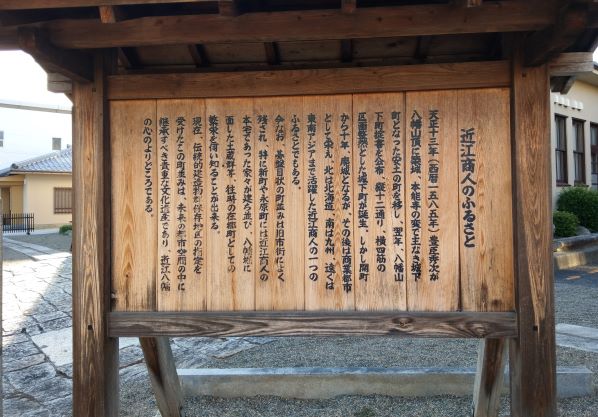 近江商人のふるさと
天正十三年（西暦一五八五年）豊臣秀次が
八幡山頂に築城、本能寺の変で主なき城下
町となった安土の町を移し、翌年、八幡山
下町掟書を公布、縦十二通り、横四筋の
区画整然とした城下町が誕生、しかし開町
から十年、廃城となるが、その後は商業都市
として栄え、北は北海道、南は九州、遠くは
東南アジアまで活躍した近江商人の一つの
ふるさとでもある。
今なお、碁盤目状の町並みは旧市街によく
残され、特に新町や永原町には近江商人の
本宅であった家々が建ち並び、八幡堀に
面した土蔵群等、往時の在郷町としての
繁栄を伺い知ることが出来る。
現在、伝統的建造物群保存地区の指定を
受けたこの町並みは、未来の都市空間の中に
継承すべき貴重な文化遺産であり、近江八幡
の心のよりどころである。